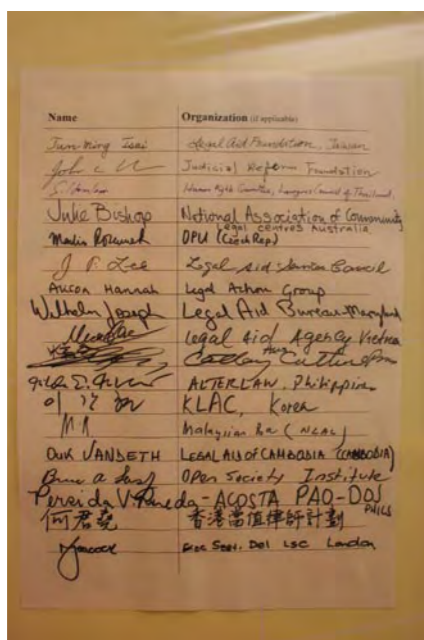 Name Organization (if applicable)
Jun Ming Tsai Legal Aid Foundation, Taiwan
John Judicial Reform Foundation
Human Right Committee, Lawyers Council of Thailand,
Julie Bishop National Association of Community
Legal Centres Australia
Martin OPU (Czech Rep)
J P Lee Legal Aid Services Council
Alison Hannah Legal Action Group
Wilhelm Joseph Legal Aid Bureau-Maryland
Legal Aid Agency Vietnam
ALTERLAW, Philippines
KLAC, Korea
MR Malaysian Bar (NLAC)
OUK VANDETH LEGAL AID OF CAMBODIA (CAMBODIA)
Open Society Institute
Persida V. Rueda-ACOSTA PAO-DOJ
PHILS
何君堯 香港當值律師計劃
LSC London